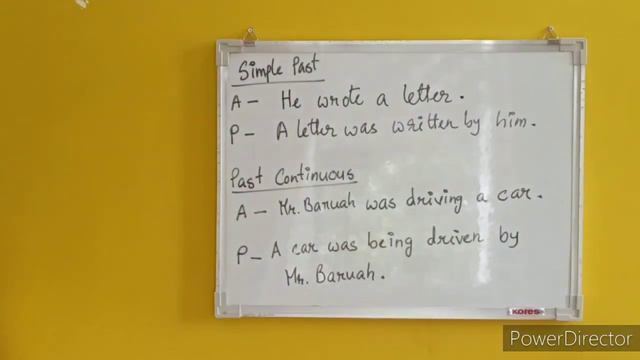 Simple Past
A - He wrote a letter.
P - A letter was written by him.
Past Continuous
A - Mr. Baruah was driving a car.
P - A car was being driven by
Mr. Baruah.
KORES
PowerDirector